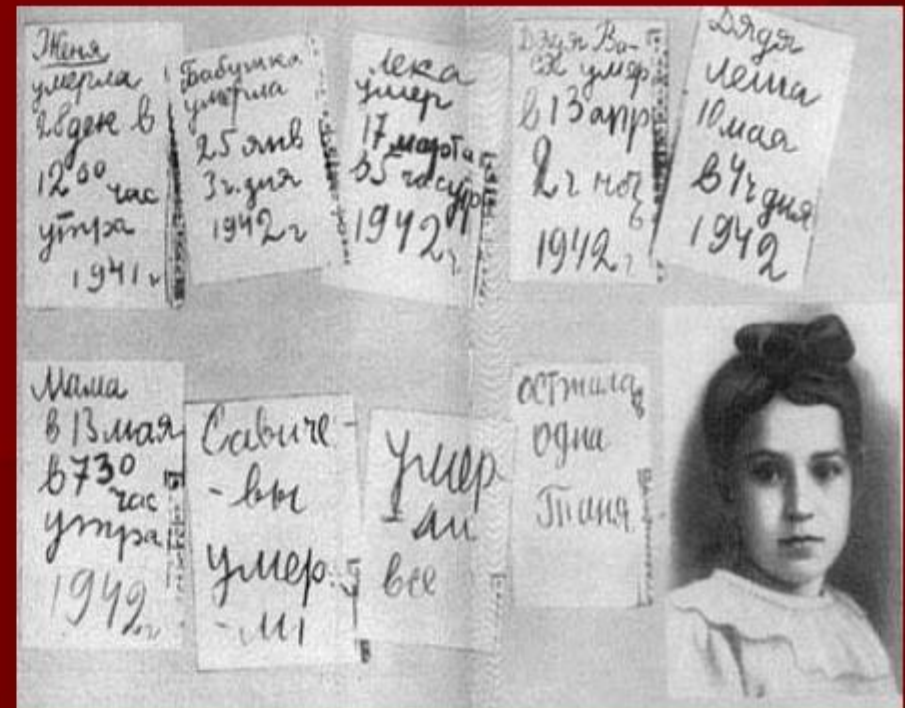 Женя
умерла
28 дек в
12 00 час
утра
1941 г
Бабушка
умерла
25 янв
3 ч. дня
1942 г
Лека
умер
17 марта
в 5 часутр
1942 г
Дядя Ва-
ся умер
в 13 апр
2 ч ноч
1942 г
Дядя
Леша
10 мая
в 4 ч дня
1942
Мама
в 13 мая
в 7 30
час
утра
1942 г
Савиче-
-вы
умер-
-ли
умер
-ли
все
осталась
одна
Таня